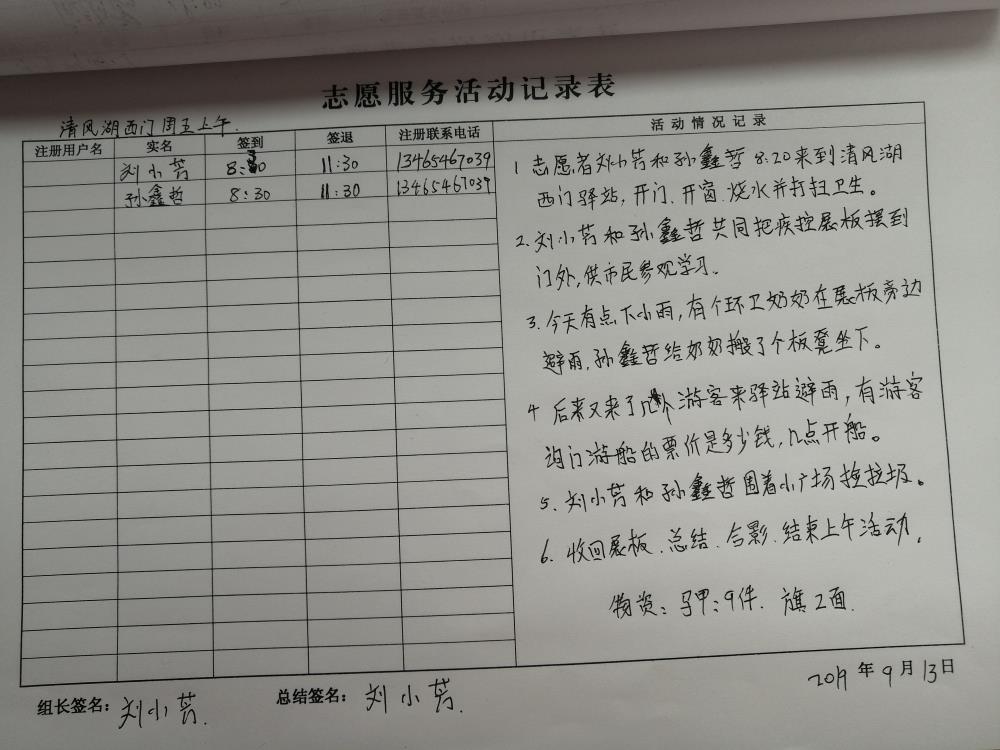 志愿服务活动记录表
清风湖西门周五上午.
注册用户名 实名 签到 签退 注册联系电话 活动情况记录
刘小芳 8:30 11:30 13465467039
孙鑫哲 8:30 11:30 13465467039
1 志愿者刘小芳和孙鑫哲 8:20来到清风湖
西门驿站,开门、开窗、烧水并打扫卫生。
2. 刘小芳和孙鑫哲共同把疾控展板摆到
门外,供市民参观学习。
3. 今天有点下小雨,有个环卫奶奶在展板旁边
避雨,孙鑫哲给奶奶搬了个板凳坐下。
4 后来又来了几个游客来驿站避雨,有游客
询门游船的票价是多少钱,几点开船。
5. 刘小芳和孙鑫哲围着小广场捡垃圾。
6. 收回展板、总结、合影、结束上午活动.
物资:马甲:9件. 旗2面.
组长签名:刘小芳. 总结签名:刘小芳.
2019年9月13日